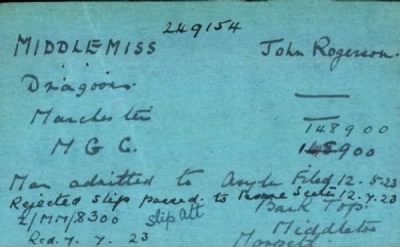 249154
MIDDLEMISS John Rogerson.
Dragoons —
Manchester —
148900
M G C. 148900
Man admitted to Asyle Filed 12.5.23
Rejected slip passed to Home Sectn 12.7.23
Z/MM/8300 slip att Back Top.
Rcd. 7. 7. 23 Middleton